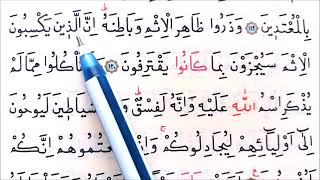 بِالْمُعْتَد۪ينَ ﴿١١٩﴾ وَذَرُوا ظَاهِرَ الْاِثْمِ وَبَاطِنَهُۜ اِنَّ الَّذ۪ينَ يَكْسِبُونَ
الْاِثْمَ سَيُجْزَوْنَ بِمَا كَانُوا يَقْتَرِفُونَ ﴿١٢٠﴾ تَأْكُلُوا مِمَّا لَمْ
يُذْكَرِ اسْمُ اللّٰهِ عَلَيْهِ وَاِنَّهُ لَفِسْقٌۜ الشَّيَاط۪ينَ لَيُوحُونَ
اِلٰٓى اَوْلِيَٓائِهِمْ لِيُجَادِلُوكُمْۚ اِنَّكُمْ